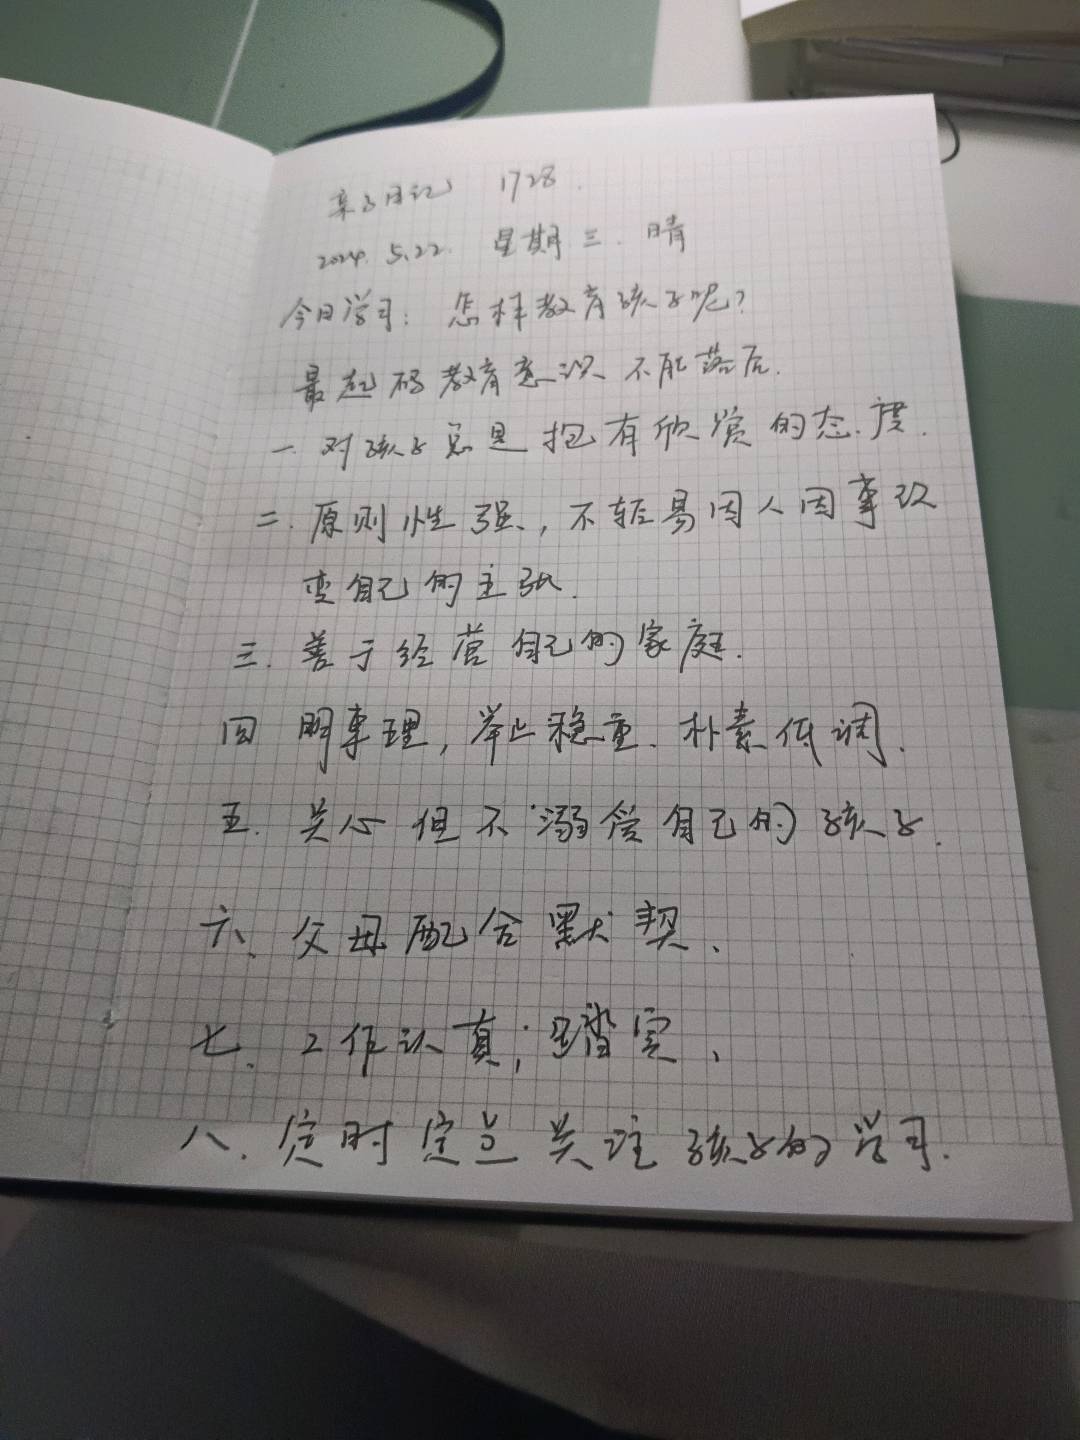 亲子日记 1728.
2024.5.22. 星期三.晴
今日学习：怎样教育孩子呢？
最起码教育意识不能落后.
一.对孩子总是抱有欣赏的态度.
二.原则性强，不轻易因人因事改
变自己的主张.
三.善于经营自己的家庭.
四 明事理，举止稳重、朴素低调.
五.关心但不溺爱自己的孩子.
六、父母配合默契、
七.工作认真；踏实、
八.定时定点关注孩子的学习.